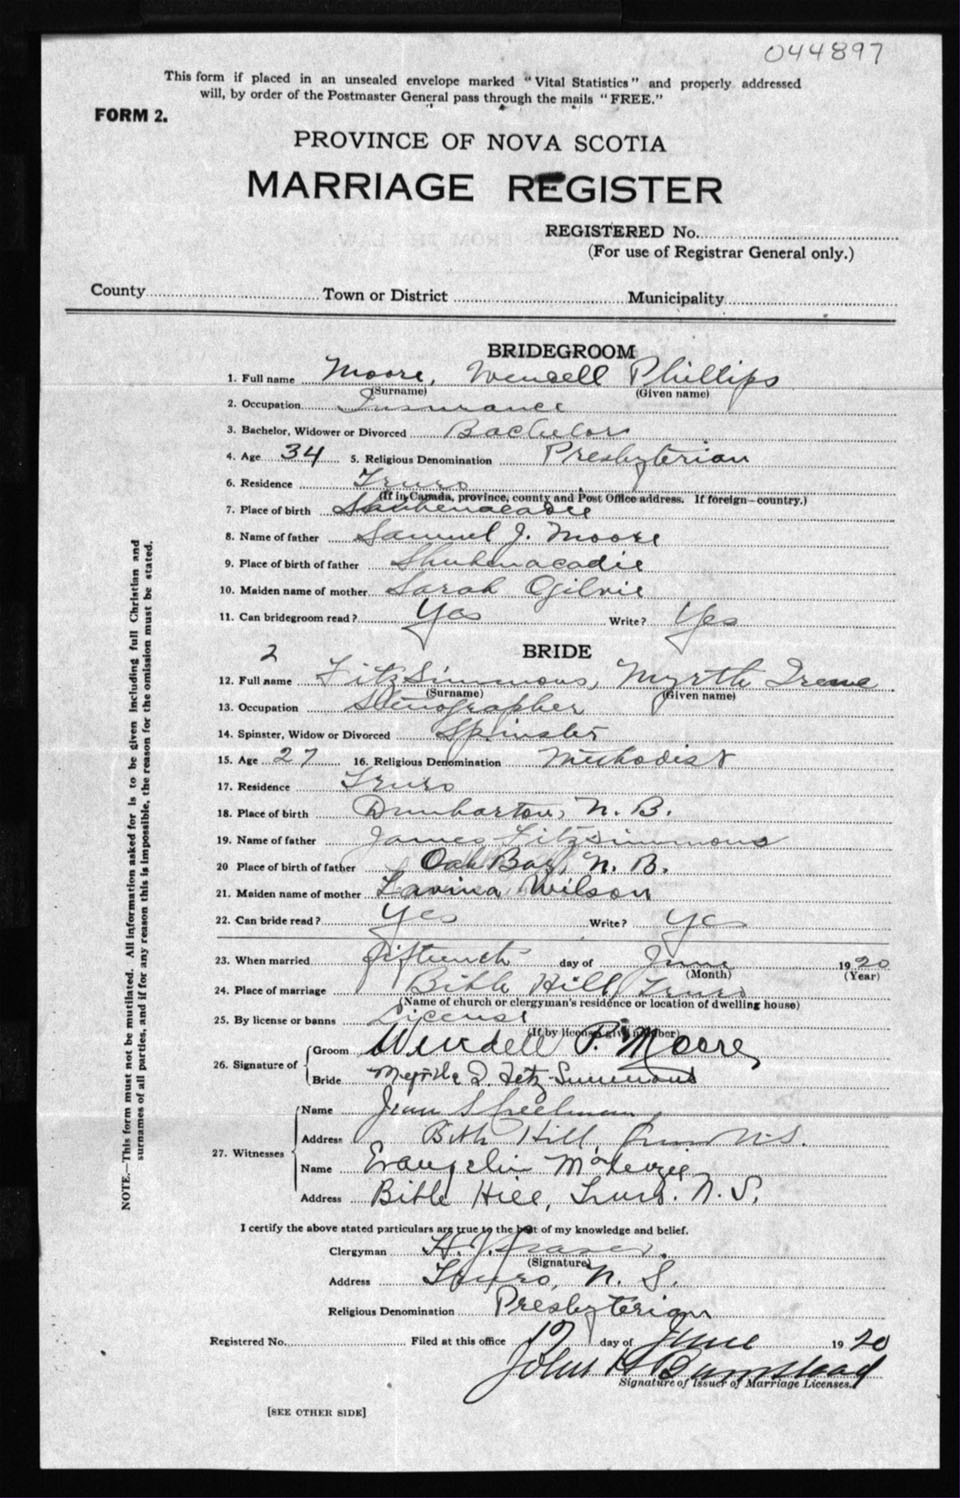 044897
This form if placed in an unsealed envelope marked "Vital Statistics" and properly addressed
will, by order of the Postmaster General pass through the mails "FREE."
FORM 2.
PROVINCE OF NOVA SCOTIA
MARRIAGE REGISTER
REGISTERED No.
(For use of Registrar General only.)
County Town or District Municipality
BRIDEGROOM
1. Full name Moore, Wendell Phillips
(Surname) (Given name)
2. Occupation Insurance
3. Bachelor, Widower or Divorced Bachelor
4. Age 34 5. Religious Denomination Presbyterian
6. Residence Truro
(If in Canada, province, county and Post Office address. If foreign—country.)
7. Place of birth Shubenacadie
8. Name of father Samuel J. Moore
9. Place of birth of father Shubenacadie
10. Maiden name of mother Sarah Ogilvie
11. Can bridegroom read? Yes Write? Yes
2 BRIDE
12. Full name FitzSimmons, Myrtle Irene
(Surname) (Given name)
13. Occupation Stenographer
14. Spinster, Widow or Divorced Spinster
15. Age 27 16. Religious Denomination Methodist
17. Residence Truro
18. Place of birth Dumbarton, N. B.
19. Name of father James Fitzsimmons
20 Place of birth of father Oak Bay, N. B.
21. Maiden name of mother Lavina Wilson
22. Can bride read? Yes Write? Yes
23. When married fifteenth day of June 1920
(Month) (Year)
24. Place of marriage Bible Hill, Truro
(Name of church or clergyman's residence or location of dwelling house)
25. By license or banns License
(If by license give number)
26. Signature of Groom Wendell P. Moore
Bride Myrtle I. Fitz-Simmons
27. Witnesses Name Jean Spielman
Address Bible Hill, Truro N.S.
Name Evangelin McKenzie
Address Bible Hill, Truro. N. S.
I certify the above stated particulars are true to the best of my knowledge and belief.
Clergyman H. J. Fraser.
(Signature)
Address Truro, N. S.
Religious Denomination Presbyterian
Registered No. Filed at this office 19 day of June 1920
John H Bumstead
Signature of Issuer of Marriage Licenses.
[SEE OTHER SIDE]
NOTE.—This form must not be mutilated. All information asked for is to be given including full Christian and
surnames of all parties, and if for any reason this is impossible, the reason for the omission must be stated.